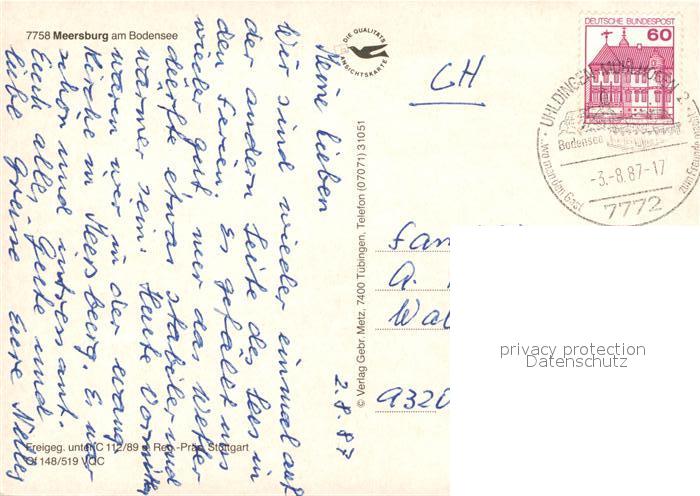 7758 Meersburg am Bodensee
DIE QUALITÄTS
ANSICHTSKARTE
DEUTSCHE BUNDESPOST
60
UHLDINGEN-MÜHLHOFEN 2
Bodensee
wo man den Gast
zum Freunde
-3.-8.87-17
7772
CH
Meine lieben
Wir sind wieder einmal auf
der andern Seite des Sees in
den Ferien. Es gefällt uns
wieder gut nur das Wetter
dürfte etwas stabiler und
wärmer sein. Heute Vormittag
waren wir in der evang.
Kirche in Meersburg. Es war
schön und intressant.
Euch alles Gute und
liebe Grüsse Eure
2.8.87
© Verlag Gebr. Metz, 7400 Tübingen, Telefon (07071) 31051
Fam
A.
Wa
9320
privacy protection
Datenschutz
Freigeg. unter C 112/89 v. Reg.-Präs. Stuttgart
Of 148/519 VQC